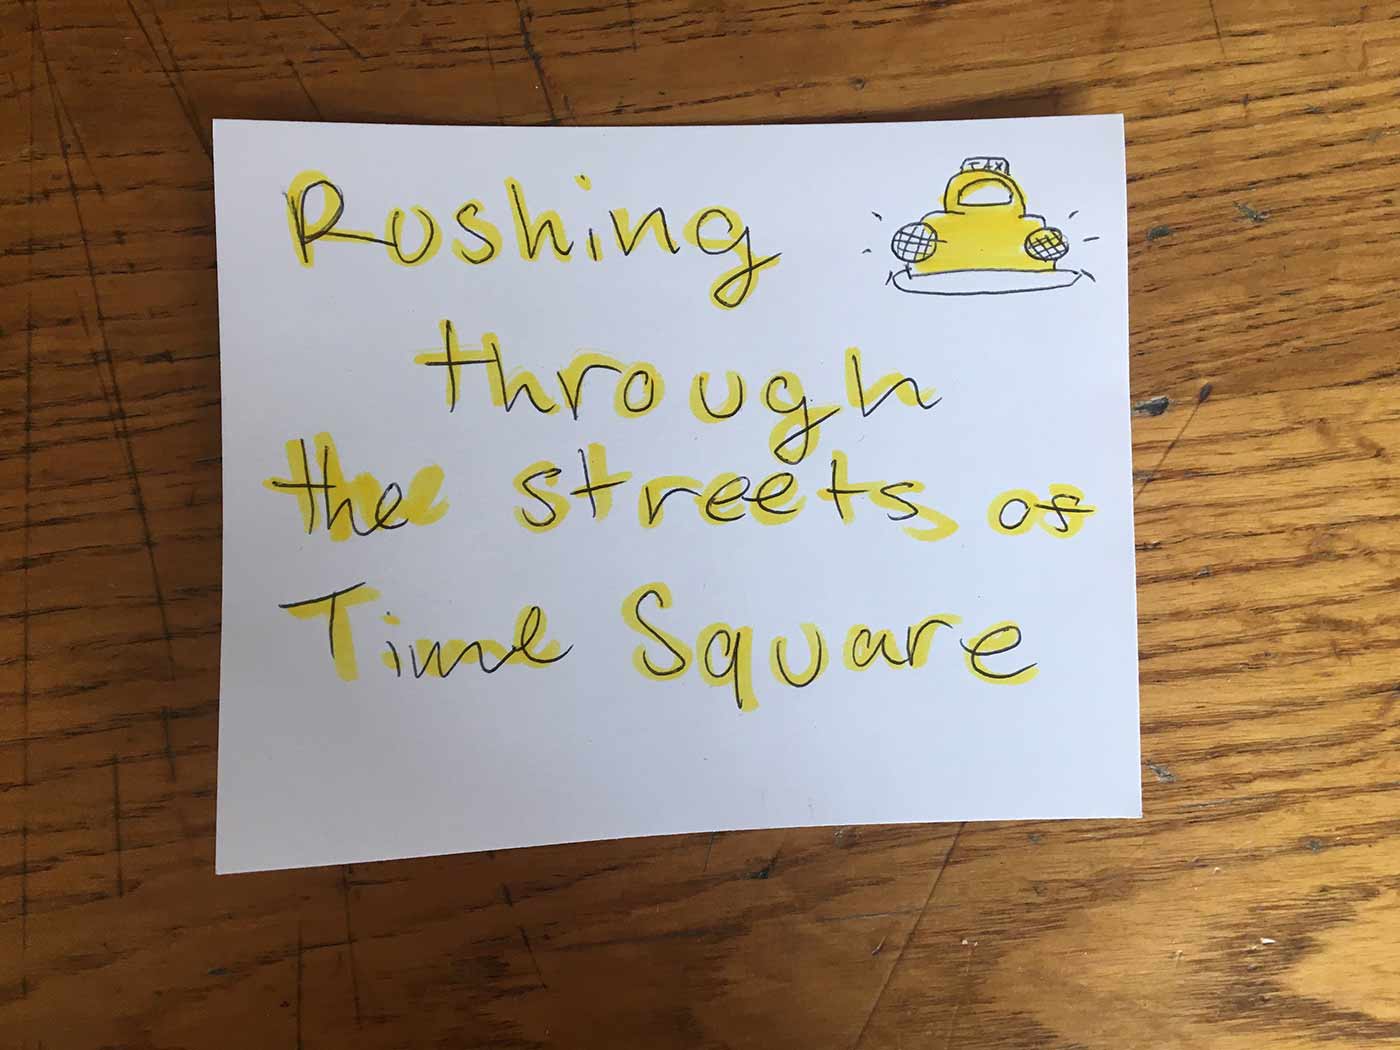 TAXI
Rushing
through
the streets of
Time Square